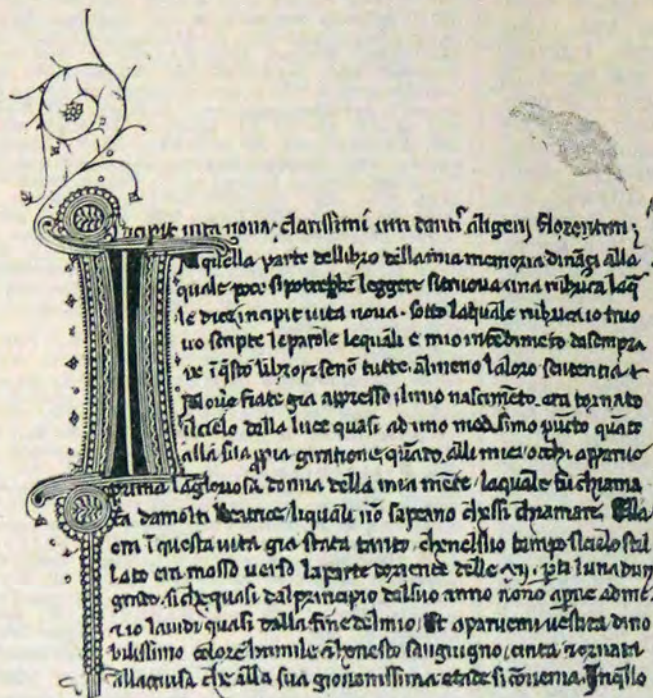 Incipit vita nova clarissimi viri dantis aligerij florentini
N quella parte dellibro dellamia memoria dinãzi alla
quale poco sipotrebbe leggere sitruova una rubrica laq̃
le dice incipit vita nova. sotto laquale rubrica io truo
vo scripte leparole lequali e mio intẽdimeto dasempra
re ĩ q̃sto libro se nõ tutte. almeno laloro sententia
Nove fiate gia appresso ilmio nascimẽto. era tornato
ilcielo della luce quasi ad uno medesimo pũcto quãto
alla sua ꝓpria giratione, quãdo alli miei occhi apparue
prima lagloriosa donna della mia mẽte / laquale fu chiama
ta damolti beatrice / liquali nõ sapeano chessi chiamare. Ella
era ĩ questa vita gia stata tanto. chenelsuo tempo lo cielo stel
lato era mosso verso laparte doriente delle xij. luna dun
grado. si che quasi dalprincipio delsuo anno nono apue adme
io la vidi quasi dalla fine delmio. Et aparuemi vestita dino
bilissimo colore humile honesto sanguigno / cinta ornata
allaguisa che alla sua giovanissima etade si convenia. Inq̃llo